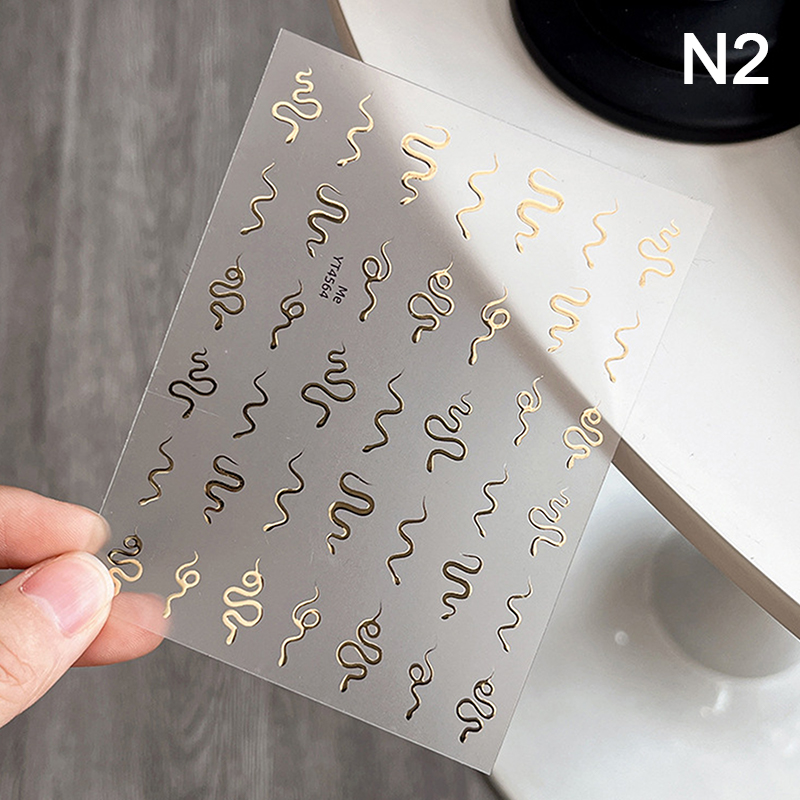 N2
Me
YT4564